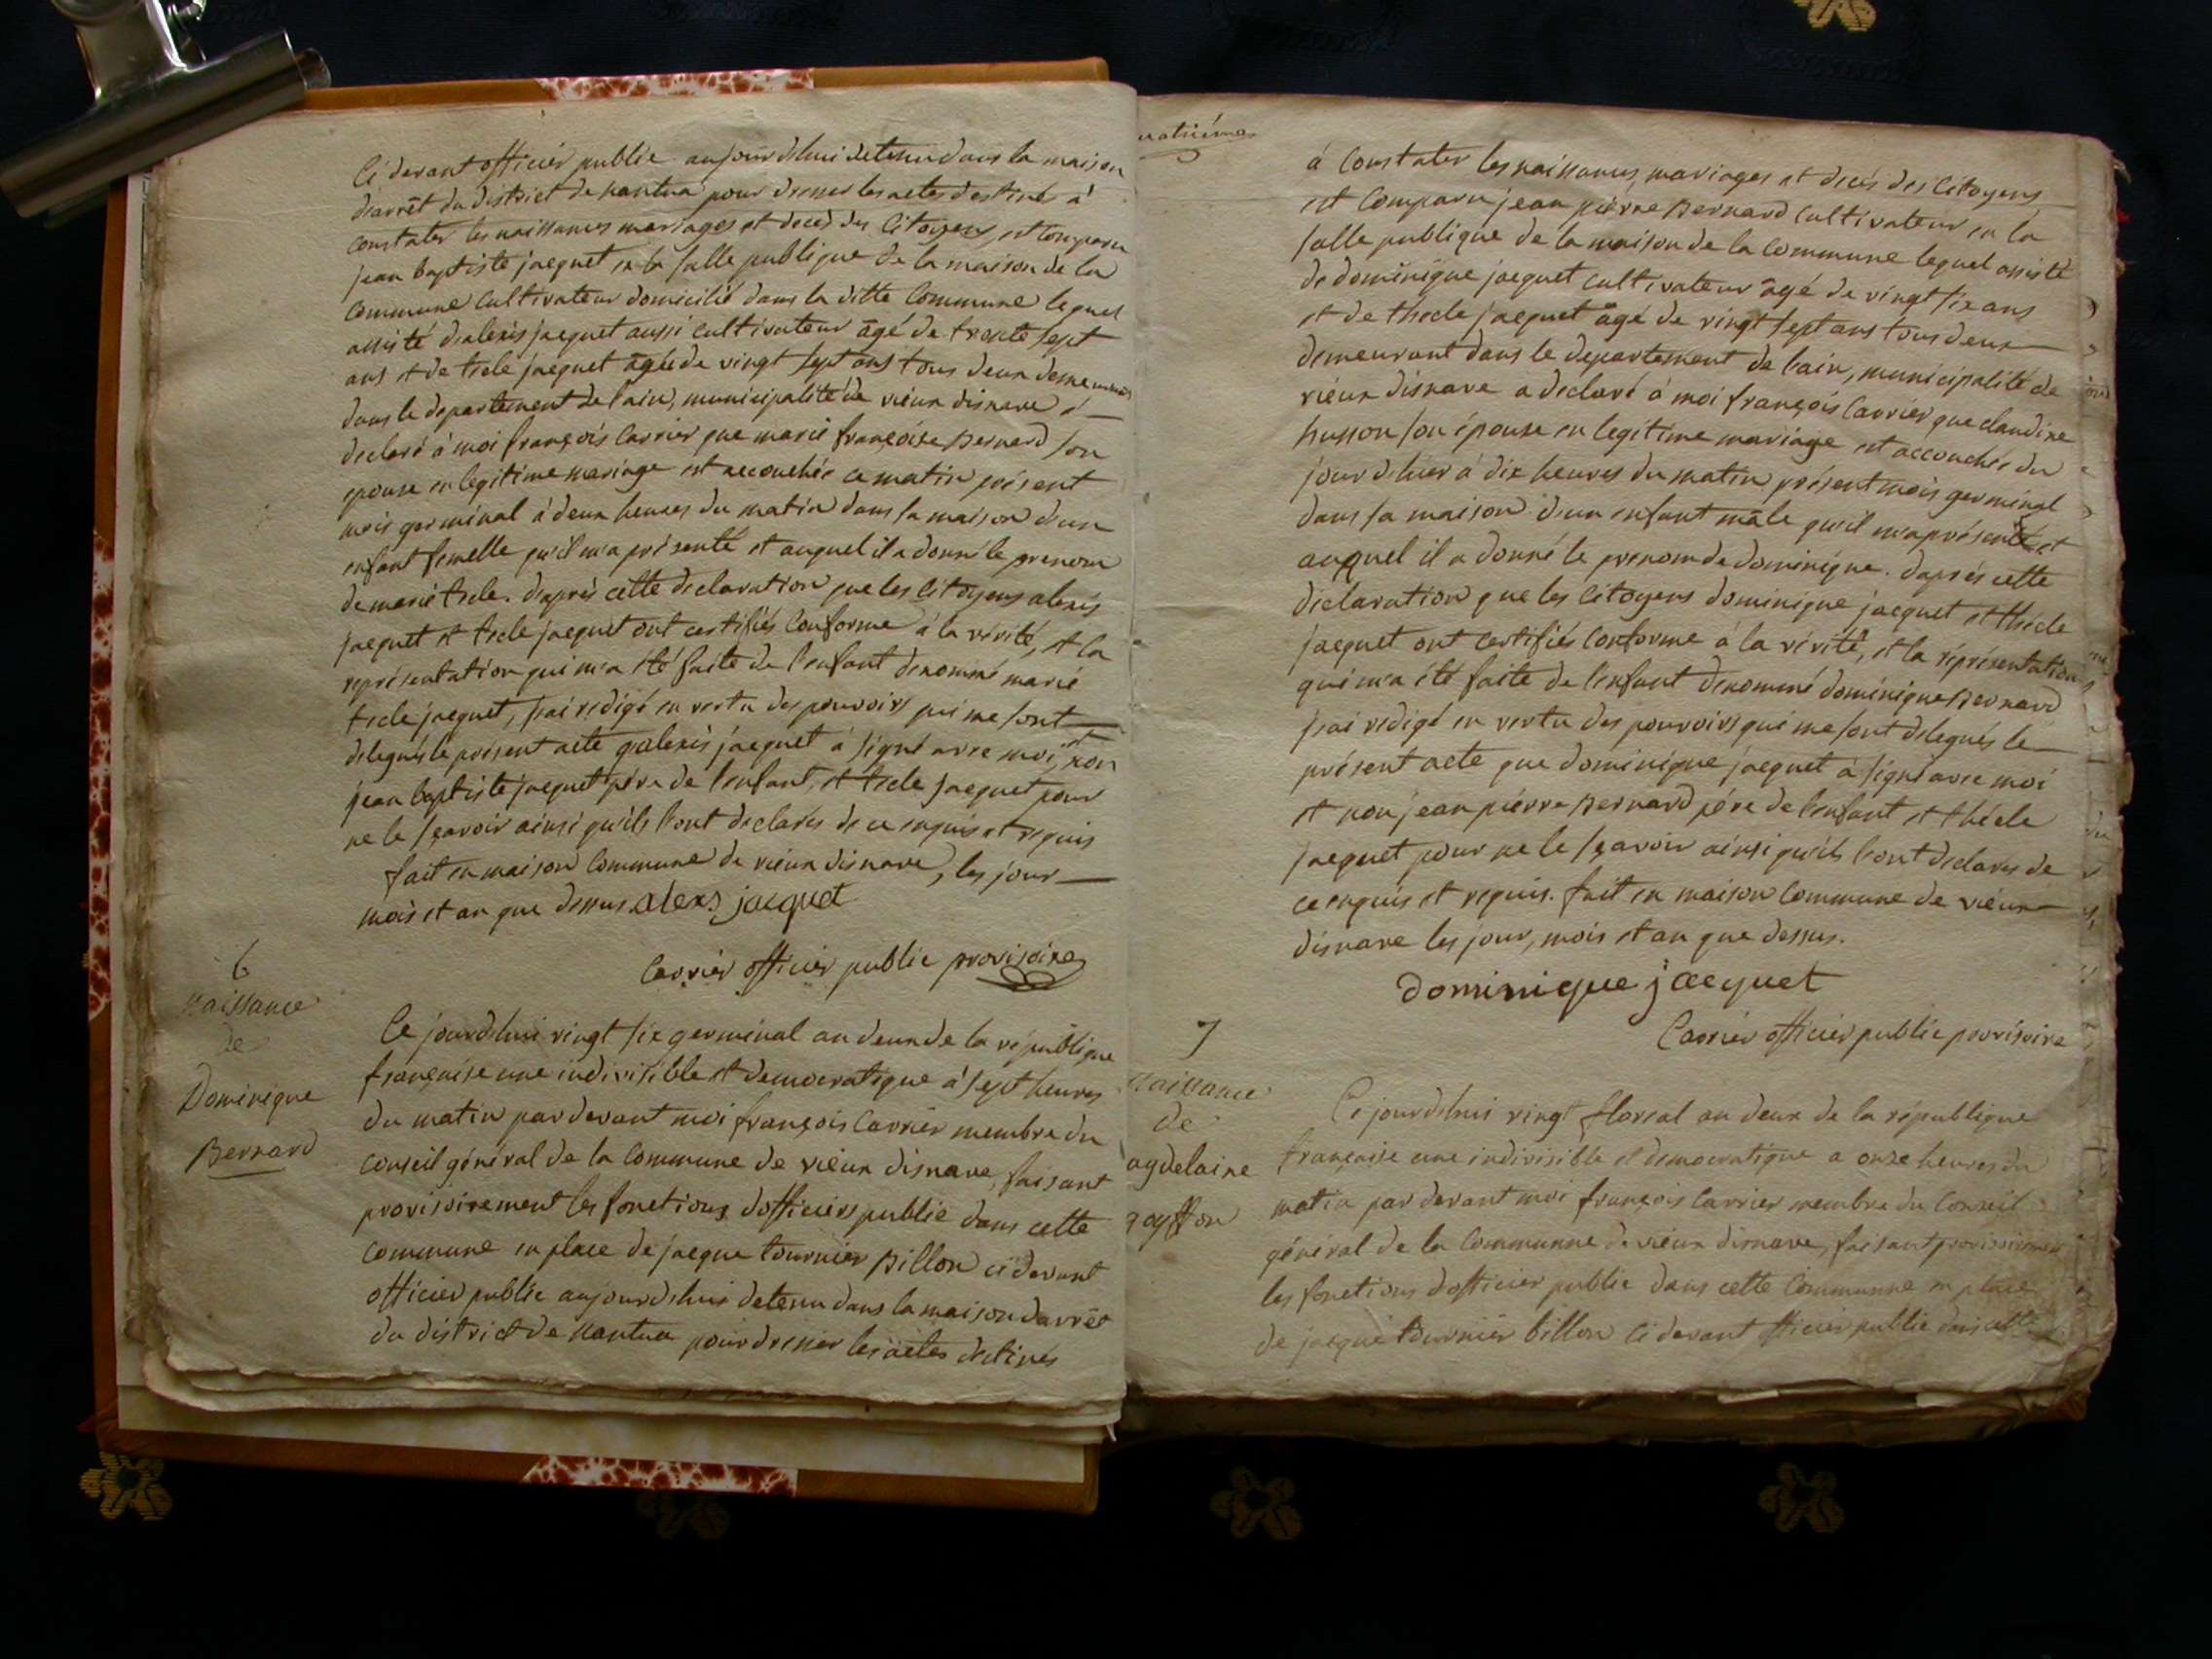 Ci devant officier public aujourdhui detenu dans la maison
d'arrêt du district de nantua pour dresser les actes destinés à
constater les naissances mariages et décès des citoyens, est comparu
jean baptiste jacquet en la salle publique de la maison de la
commune cultivateur domicilié dans la ditte commune lequel
assisté d'alexis jacquet aussi cultivateur âgé de trente sept
ans et de tecle jacquet âgée de vingt sept ans tous deux demeurants
dans le departement de l'ain, municipalité de vieux disnave à
declaré à moi françois Carrier que marie françoise Bernard son
epouse en legitime mariage est accouchée ce matin présent
mois germinal à deux heures du matin dans sa maison d'un
enfant femelle qu'il m'a présenté et auquel il a donné le prenom
de marie tecle. d'après cette declaration que les citoyens alexis
jacquet et tecle jacquet ont certifiés conforme à la vérité, et la
représentation qui m'a été faite de l'enfant denommé marie
tecle jacquet, j'ai redigé en vertu des pouvoirs qui me sont
delegués le présent acte qu'alexis jacquet à signé avec moi, et non
jean baptiste jacquet père de l'enfant, et tecle jacquet pour
ne le sçavoir ainsi qu'ils l'ont declarés de ce enquis et requis
fait en maison commune de vieux disnave, les jour
mois et an que dessus. alexs jacquet
Carrier officier public provisoire
6
naissance
de
Dominique
Bernard
Ce jourdhui vingt six germinal an deux de la république
française une indivisible et democratique à sept heures
du matin par devant moi françois Carrier membre du
conseil général de la commune de vieux disnave, faisant
provisoirement les fonctions d'officiers public dans cette
commune en place de jacque tournier Billon ci devant
officier public aujourdhui detenu dans la maison d'arrêt
du district de nantua pour dresser les actes destinés
uatriéme
à constater les naissances, mariages et décès des citoyens
est comparu jean pierre Bernard cultivateur en la
salle publique de la maison de la commune lequel assisté
de dominique jacquet cultivateur âgé de vingt six ans
et de thecle jacquet âgé de vingt sept ans tous deux
demeurant dans le departement de l'ain, municipalité de
vieux disnave a declaré à moi françois Carrier que claudine
husson son épouse en legitime mariage est accouchée du
jour d'hier à dix heures du matin présent mois germinal
dans sa maison d'un enfant mâle qu'il m'a présenté et
auquel il a donné le prenom de dominique. d'après cette
déclaration que les citoyens dominique jacquet et thécle
jacquet ont certifiés conforme à la vérité, et la réprésentation
qui m'a été faite de l'enfant denommé dominique Bernard
j'ai redigé en vertu des pouvoirs qui me sont delegués le
présent acte que dominique jacquet à signé avec moi
et non jean pierre Bernard père de l'enfant et thécle
jacquet pour ne le sçavoir ainsi qu'ils l'ont declarés de
ce enquis et requis. fait en maison commune de vieux
disnave les jour, mois et an que dessus.
dominique jacquet
Carrier officier public provisoire
7
naissance
de
agdelaine
Ce jourdhui vingt floreal an deux de la république
française une indivisible et democratique a onze heures du
matin par devant moi françois Carrier membre du conseil
général de la Commune de vieux disnave, faisant provisoirement
les fonctions d'officier public dans cette Commune en place
de jacque tournier billon ci devant officier public dans cette